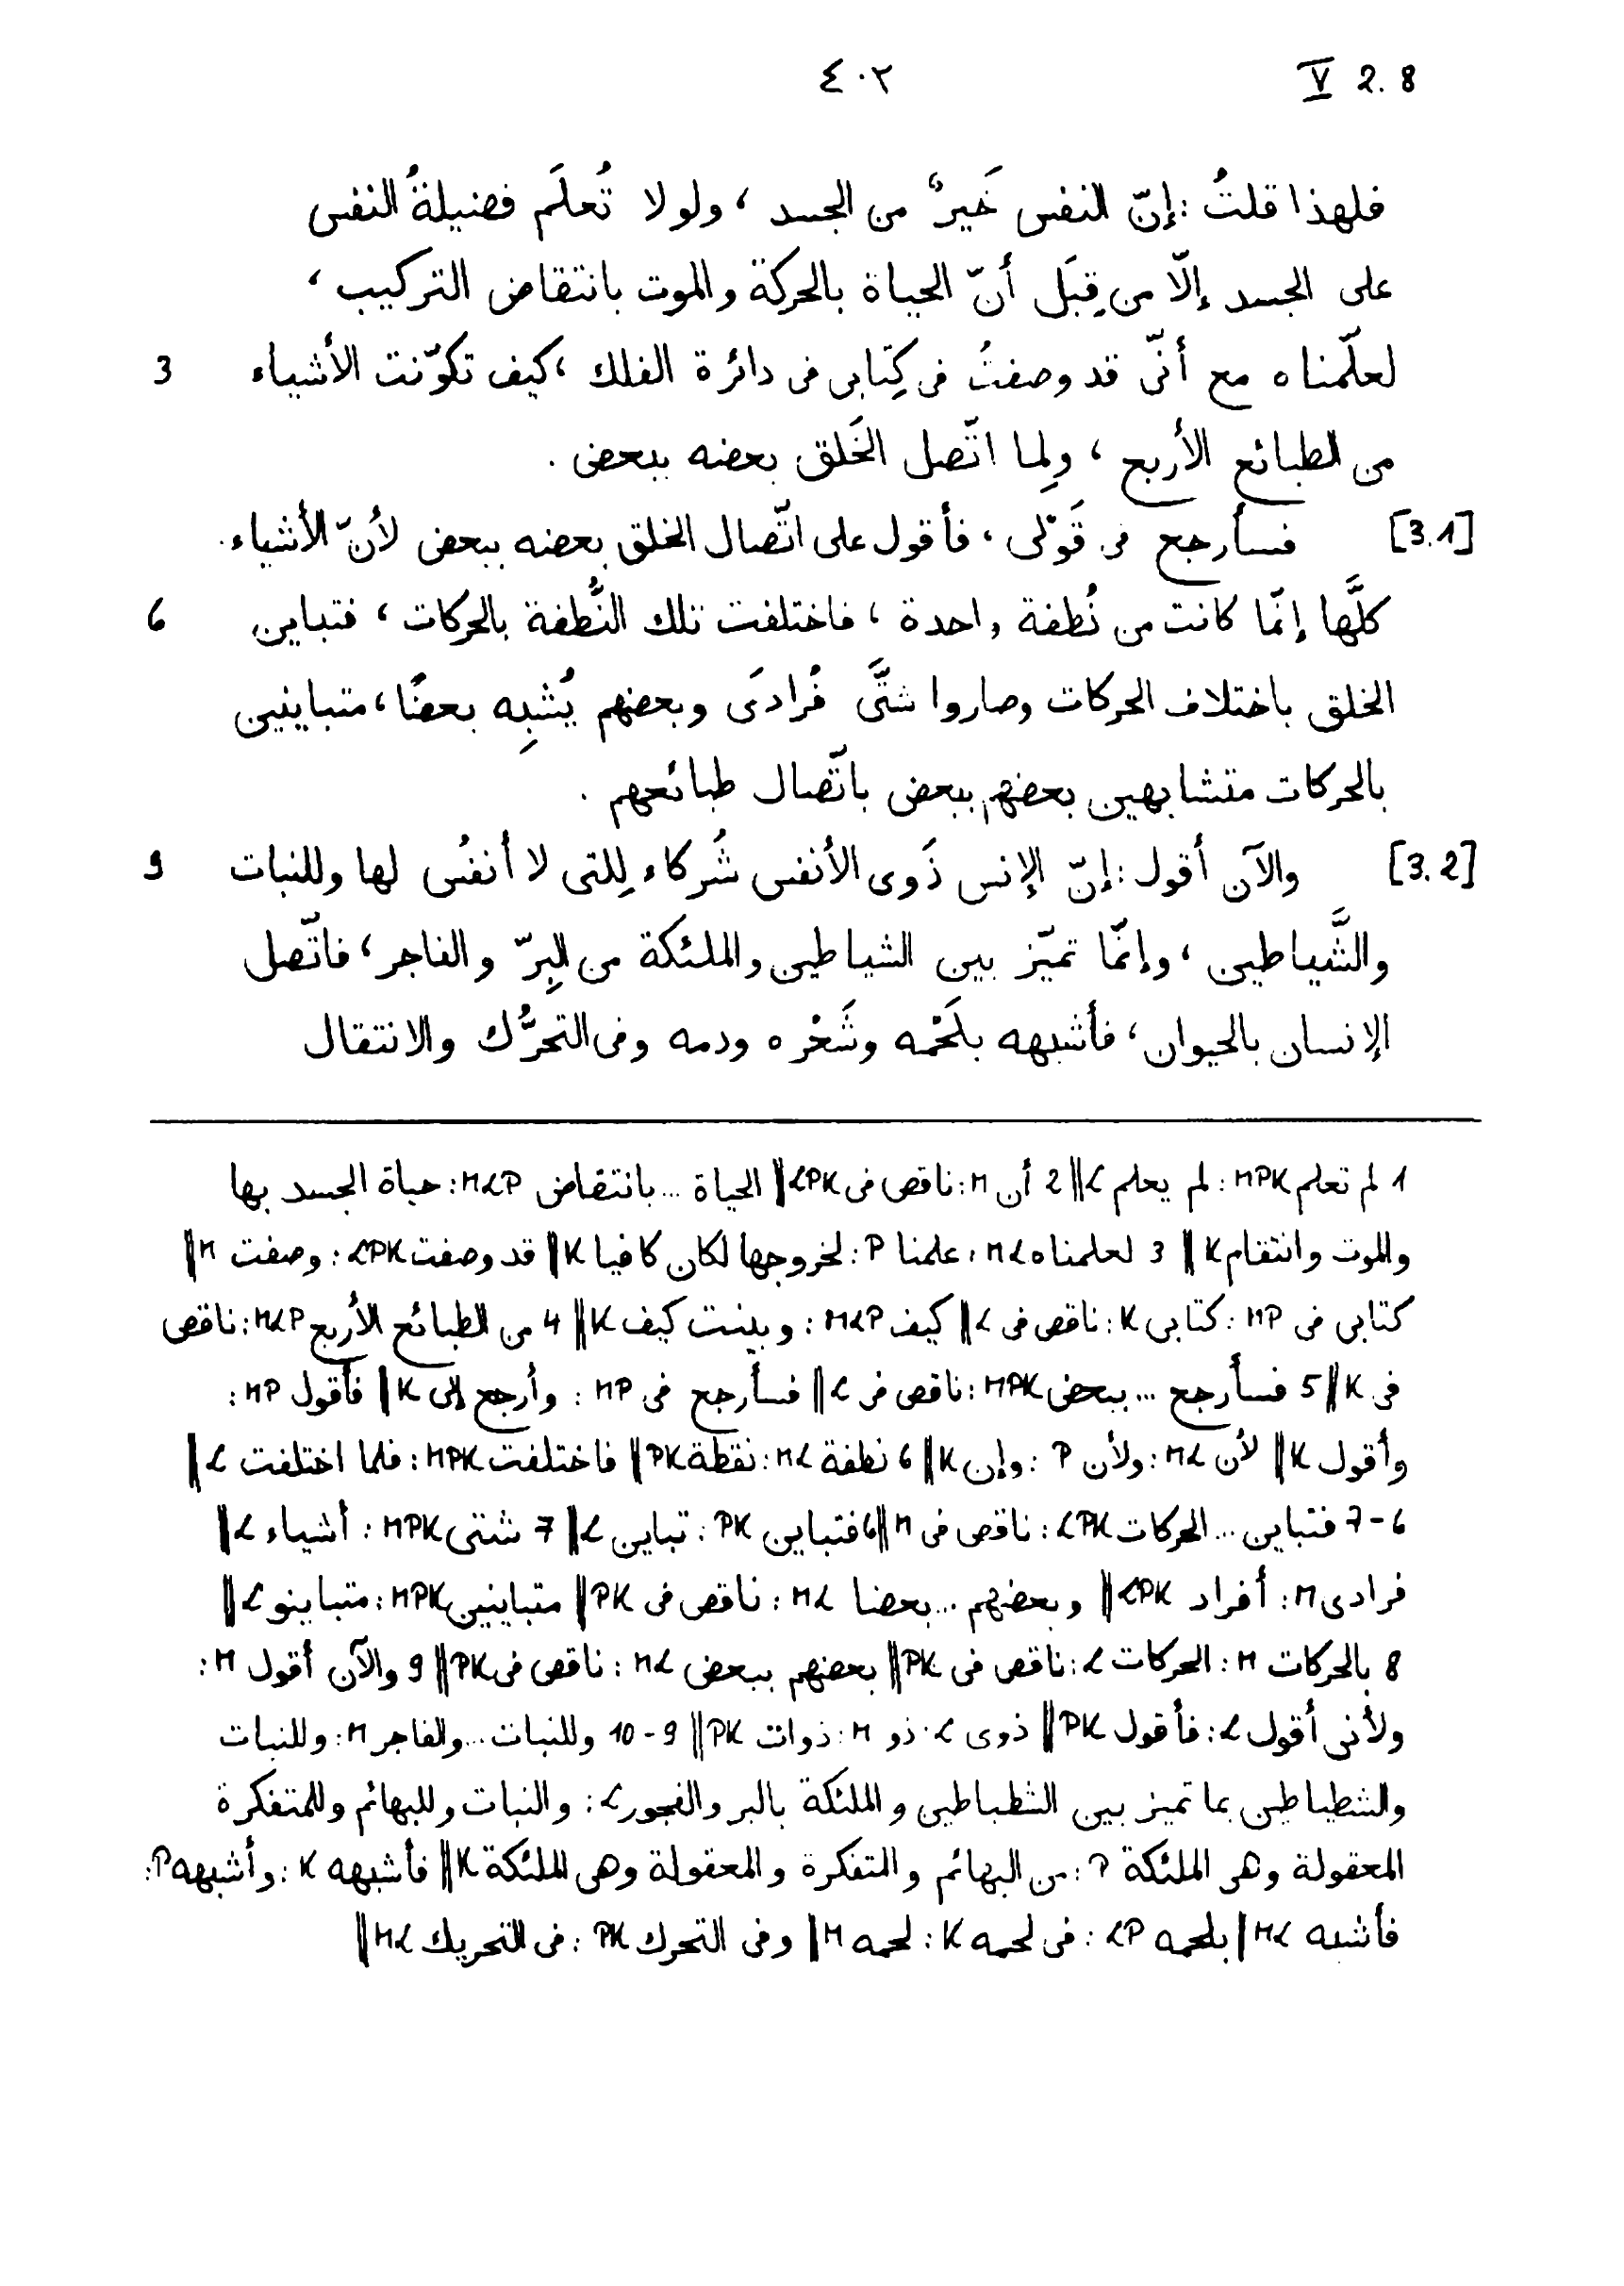 V 2.8 ٤٠٢
فلهذا قلتُ : إنّ النفس خَيرٌ من الجسد ، ولولا تُعلَم فضيلةُ النفس
على الجسد إلّا من قِبَل أنّ الحياة بالحركة والموت بانتقاض التركيب ،
3 لعلّمناه مع أنّى قد وصفتُ فى كِتابى فى دائرة الفلك ، كيف تكوّنت الأشياء
من الطبائع الأربع ، ولِما اتّصل الخَلق بعضه ببعض .
[3.1] فسأرجع فى قَوْلى ، فأقول على اتّصال الخلق بعضه ببعض لأنّ الأشياء
6 كلَّها إنّما كانت من نُطفة واحدة ، فاختلفت تلك النُّطفة بالحركات ، فتباين
الخلق باختلاف الحركات وصاروا شتَّى فُرادَى وبعضهم يُشبِه بعضًا ، متباينين
بالحركات متشابهين بعضهم ببعض باتّصال طبائعهم .
[3.2] 9 والآن أقول : إنّ الإنس ذَوى الأنفس شُركاء لِلتى لا أنفُس لها وللنبات
والشَّياطين ، وإنّما تميّز بين الشياطين والملئكة من البِرّ والفاجر ، فاتّصل
الإنسان بالحيوان ، فأشبهه بلَحْمه وشَعْره ودمه وفى التحرُّك والانتقال
1 لم تعلم MPK : لم يعلم L ‖ 2 أن M : ناقص فى LPK ‖ الحياة ... بانتقاض MLP : حياة الجسد بها
والموت وانتقام K ‖ 3 لعلمناه ML : علمنا P : لخروجها لكان كافيا K ‖ قد وصفت LPK : وصفت M ‖
كتابى فى MP : كتابى K : ناقص فى L ‖ كيف MLP : وبينت كيف K ‖ 4 من الطبائع الأربع MLP : ناقص
فى K ‖ 5 فسأرجع ... ببعض MPK : ناقص فى L ‖ فسأرجع فى MP : وأرجع إلى K ‖ فأقول MP :
وأقول K ‖ لأن ML : ولأن P : وإن K ‖ 6 نطفة ML : نقطة PK ‖ فاختلفت MPK : فلما اختلفت L ‖
6-7 فتباين ... الحركات LPK : ناقص فى M ‖ 6 فتباين PK : تباين L ‖ 7 شتى MPK : أشياء L ‖
فرادى M : أفراد LPK ‖ وبعضهم ... بعضا ML : ناقص فى PK ‖ متباينين MPK : متباينو L ‖
8 بالحركات M : الحركات L : ناقص فى PK ‖ بعضهم ببعض ML : ناقص فى PK ‖ 9 والآن أقول M :
ولأنى أقول L : فأقول PK ‖ ذوى L : ذو M : ذوات PK ‖ 9-10 وللنبات ... والفاجر M : وللنبات
والشطياطين بما تميز بين الشطباطين والملئكة بالبر والفجور L : والنبات وللبهائم وللمتفكرة
المعقولة وهى الملئكة P : من البهائم والمتفكرة والمعقولة وهى الملئكة K ‖ فأشبهه K : وأشبهه P :
فأشبه ML | بلحمه LP : فى لحمه K : لحمه M ‖ وفى التحرك PK : فى التحريك ML ‖